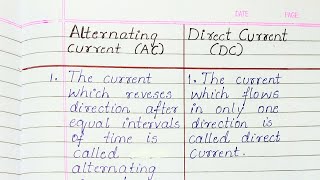 DATE PAGE
Alternating
Current (AC)
Direct Current
(DC)
1. The current
which reveses
direction after
equal intervals
of time is
called
alternating
1. The current
which flows
in only one
direction is
called direct
current.